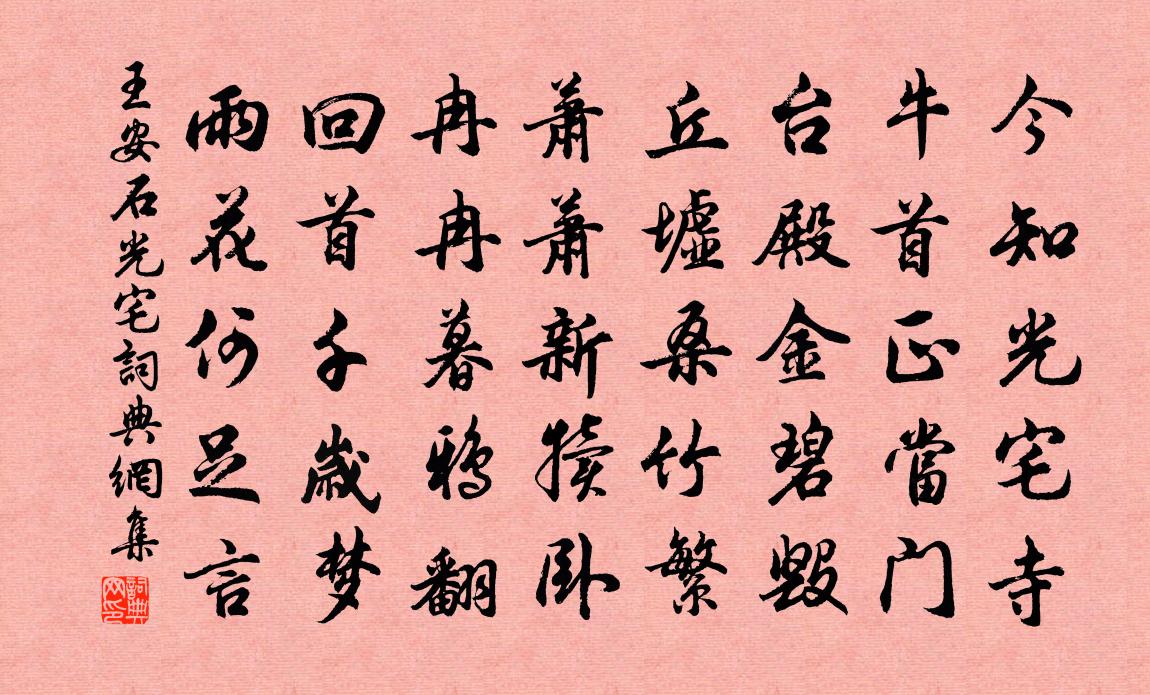 今知光宅寺
牛首正當门
台殿金碧毀
丘墟桑竹繁
蕭蕭新犢卧
冉冉暮鴉翻
回首千歲梦
雨花何足言
王安石光宅詞典網集
詞典网印